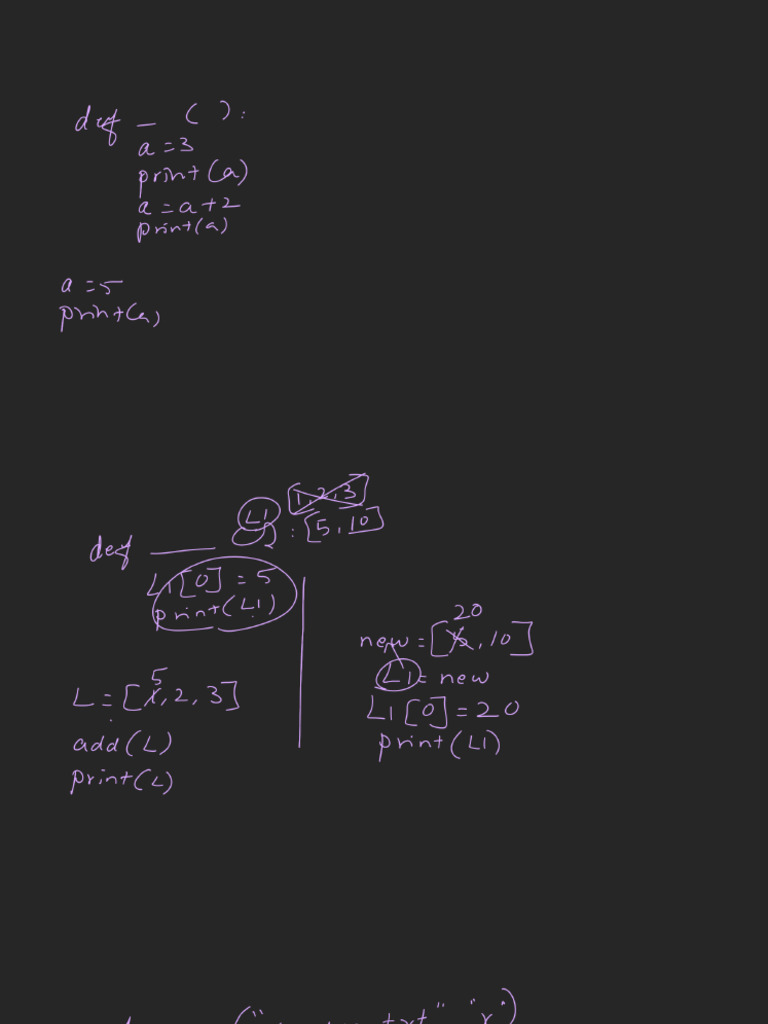 def _ ( ):
a = 3
print(a)
a = a + 2
print(a)
a = 5
print(a)
[1, 2, 3]
L1
: [5, 10]
def ____
L1[0] = 5
print(L1)
5
L = [1, 2, 3]
add(L)
print(L)
20
new = [5, 10]
L1 = new
L1[0] = 20
print(L1)